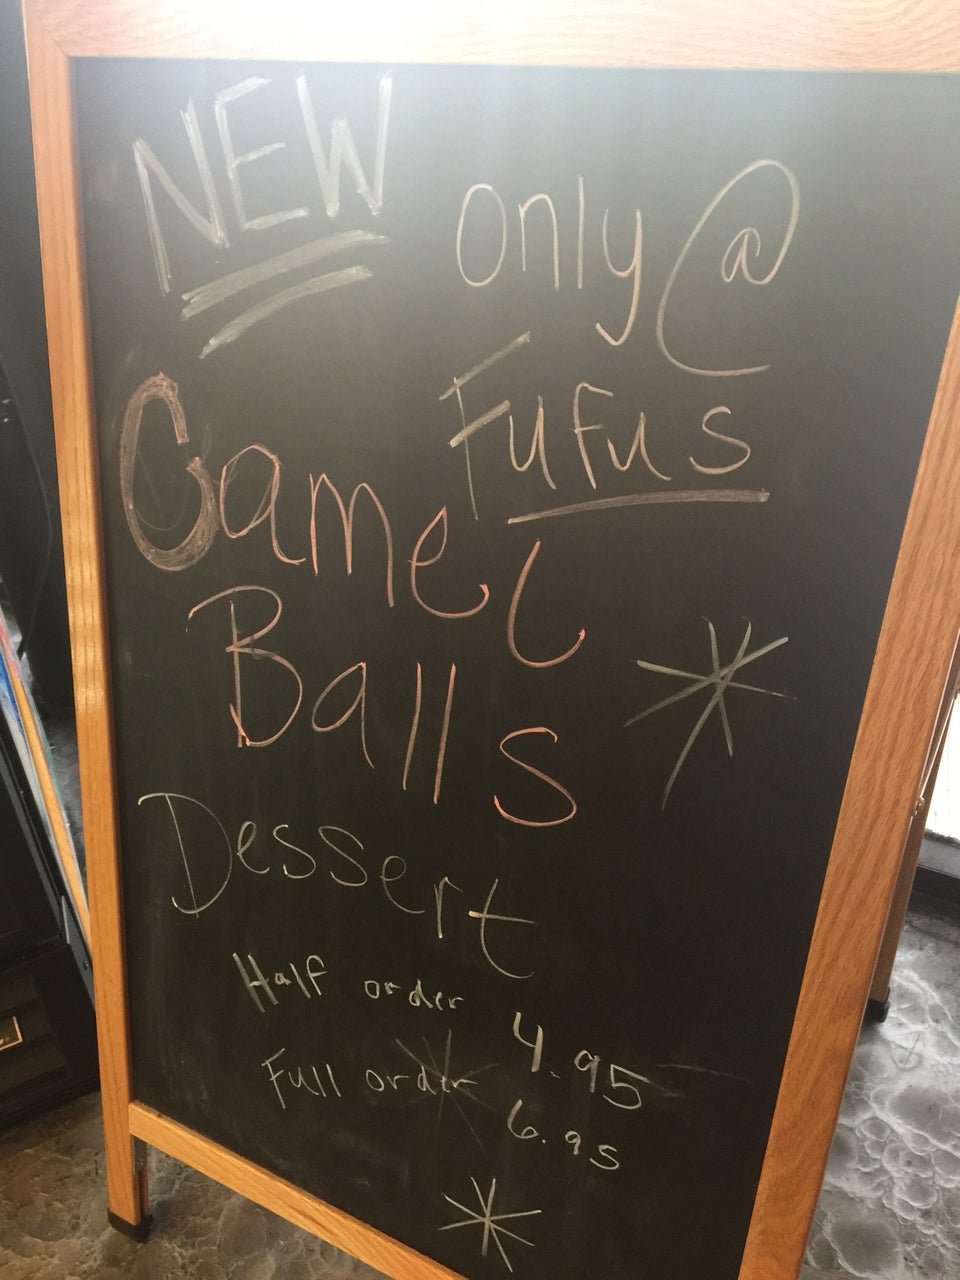 NEW
only @
Fufus
Camel
Balls
Dessert
Half order 4.95
Full order 6.95